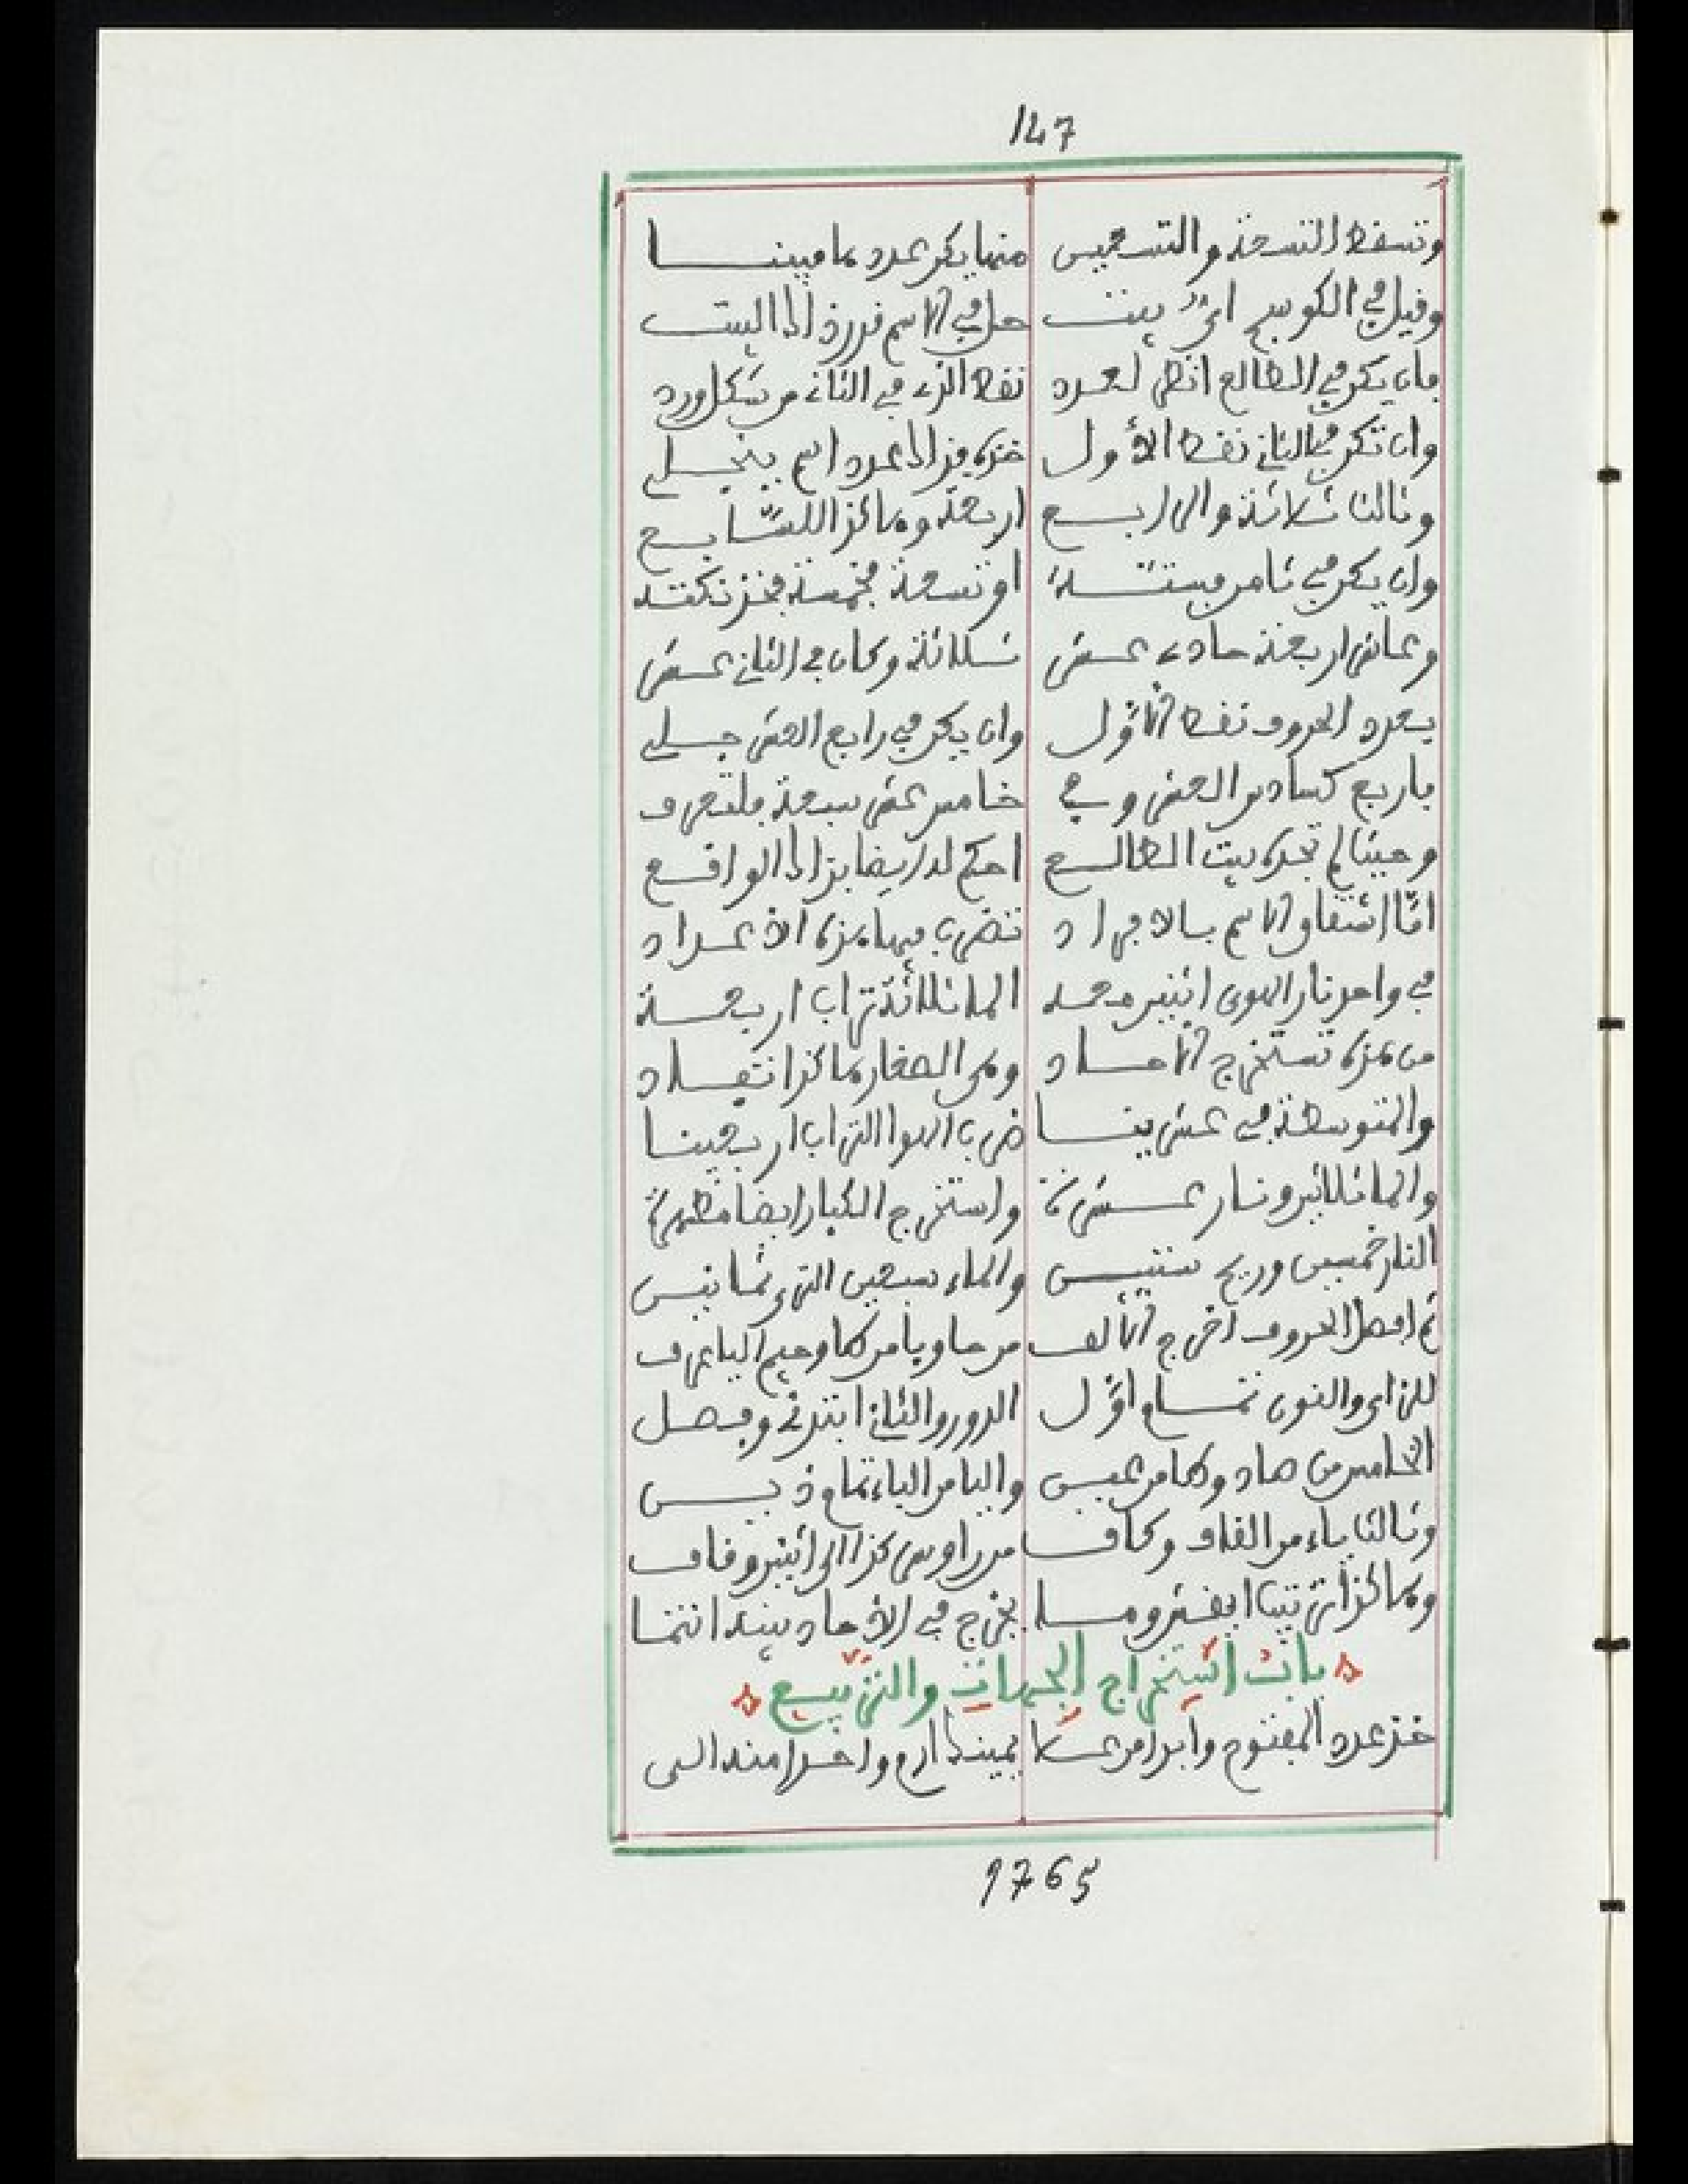 147
وتسقط التسعة والتسعين منها يكن عدد ما فيينا
وقيل في الكوسج اي بيت حل في الاسم قدر ذاك البيت
فان يكن في الطالع انظر لعدد نقط الذي في الثاني من شكل ورد
وان تكن في الثاني نقط الأول خذه فذاك عدد اسم ينجلي
وثالثا ثلاثة والرابع اربعة وهاكذا للسابع
وان يكن في ثامن فستة او تسعة فخمسة فخذ نكته
وعاشر اربعة حادي عشر ثلاثة وكان في الثاني عشر
بعدد الحروف نقط الأول وان يكن في رابع العشر جلي
باربع كسادس العشر وفي خامس عشر سبعة فلتعرف
وحيثما لم تجده بيت الطالع احكم له ايضا بذاك الواقع
امّا اشتقاق الاسم بالافراد تضرب فيها هذه الأعداد
في واحد نار الهوى اثنين معه الما ثلاثة تراب اربعة
من هذه تستخرج الأحاد وهي الصغار هاكذا تفاد
والمتوسطة في عشرينا ضرب الهوا التراب اربعينا
والما ثلاثين ونار عشرة واستخرج الكبار ايضا مظهرة
النار خمسين وريح ستين والماء سبعين الترى ثمانين
ثم افصل الحروف اخرج الألف من حا ويا من كا وجيم اليا عرف
للزاي والنون تمام اوّل الدور والثاني ابتدئ وفصل
الخامس من صاد وكا من عين واليا من الباء تمام ذين
وثالثا باء من القاف وكاف من را وسن كذا الى اثنين وقاف
وهاكذا ترتيبا ابقثر وما يخرج في الأحاد بيته انتما
باب استخراج الجهات والتربيع
خذ عدد المفتوح وابدا من على يمينك ارم واحدا منه الى
9765